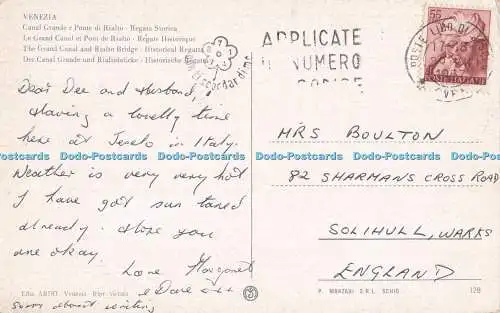 VENEZIA
Canal Grande e Ponte di Rialto - Regata Storica
Le Grand Canal et Pont de Rialto - Régate Historique
The Grand Canal and Rialto Bridge - Historical Regatta
Der Canal Grande und Rialtobrücke - Historische Regatta
Dear Dee and Husband,
Having a lovelly time
here at Jesolo in Italy.
Weather is very very hot
I have got sun taned
already. Hope you
are okay.
Love Margaret
& Dave
sorry about writing
APPLICATE
NUMERO
55
POSTE ITALIANE
POSTE LIDO DI
MRS BOULTON
82 SHARMANS CROSS ROAD
SOLIHULL, WARKS
ENGLAND
Ediz. ARDO - Venezia - Ripr. vietata
P. MARZARI S.R.L. SCHIO
128
Dodo-Postcards